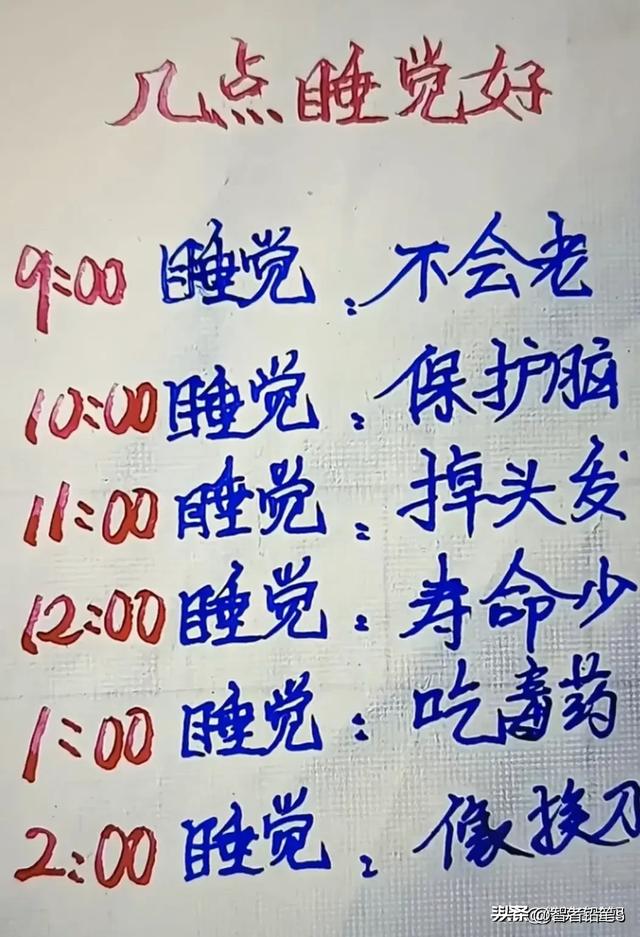 几点睡觉好
9:00 睡觉:不会老
10:00睡觉:保护脑
11:00睡觉:掉头发
12:00睡觉:寿命少
1:00 睡觉:吃毒药
2:00 睡觉:像挨刀
头条@智者铅笔